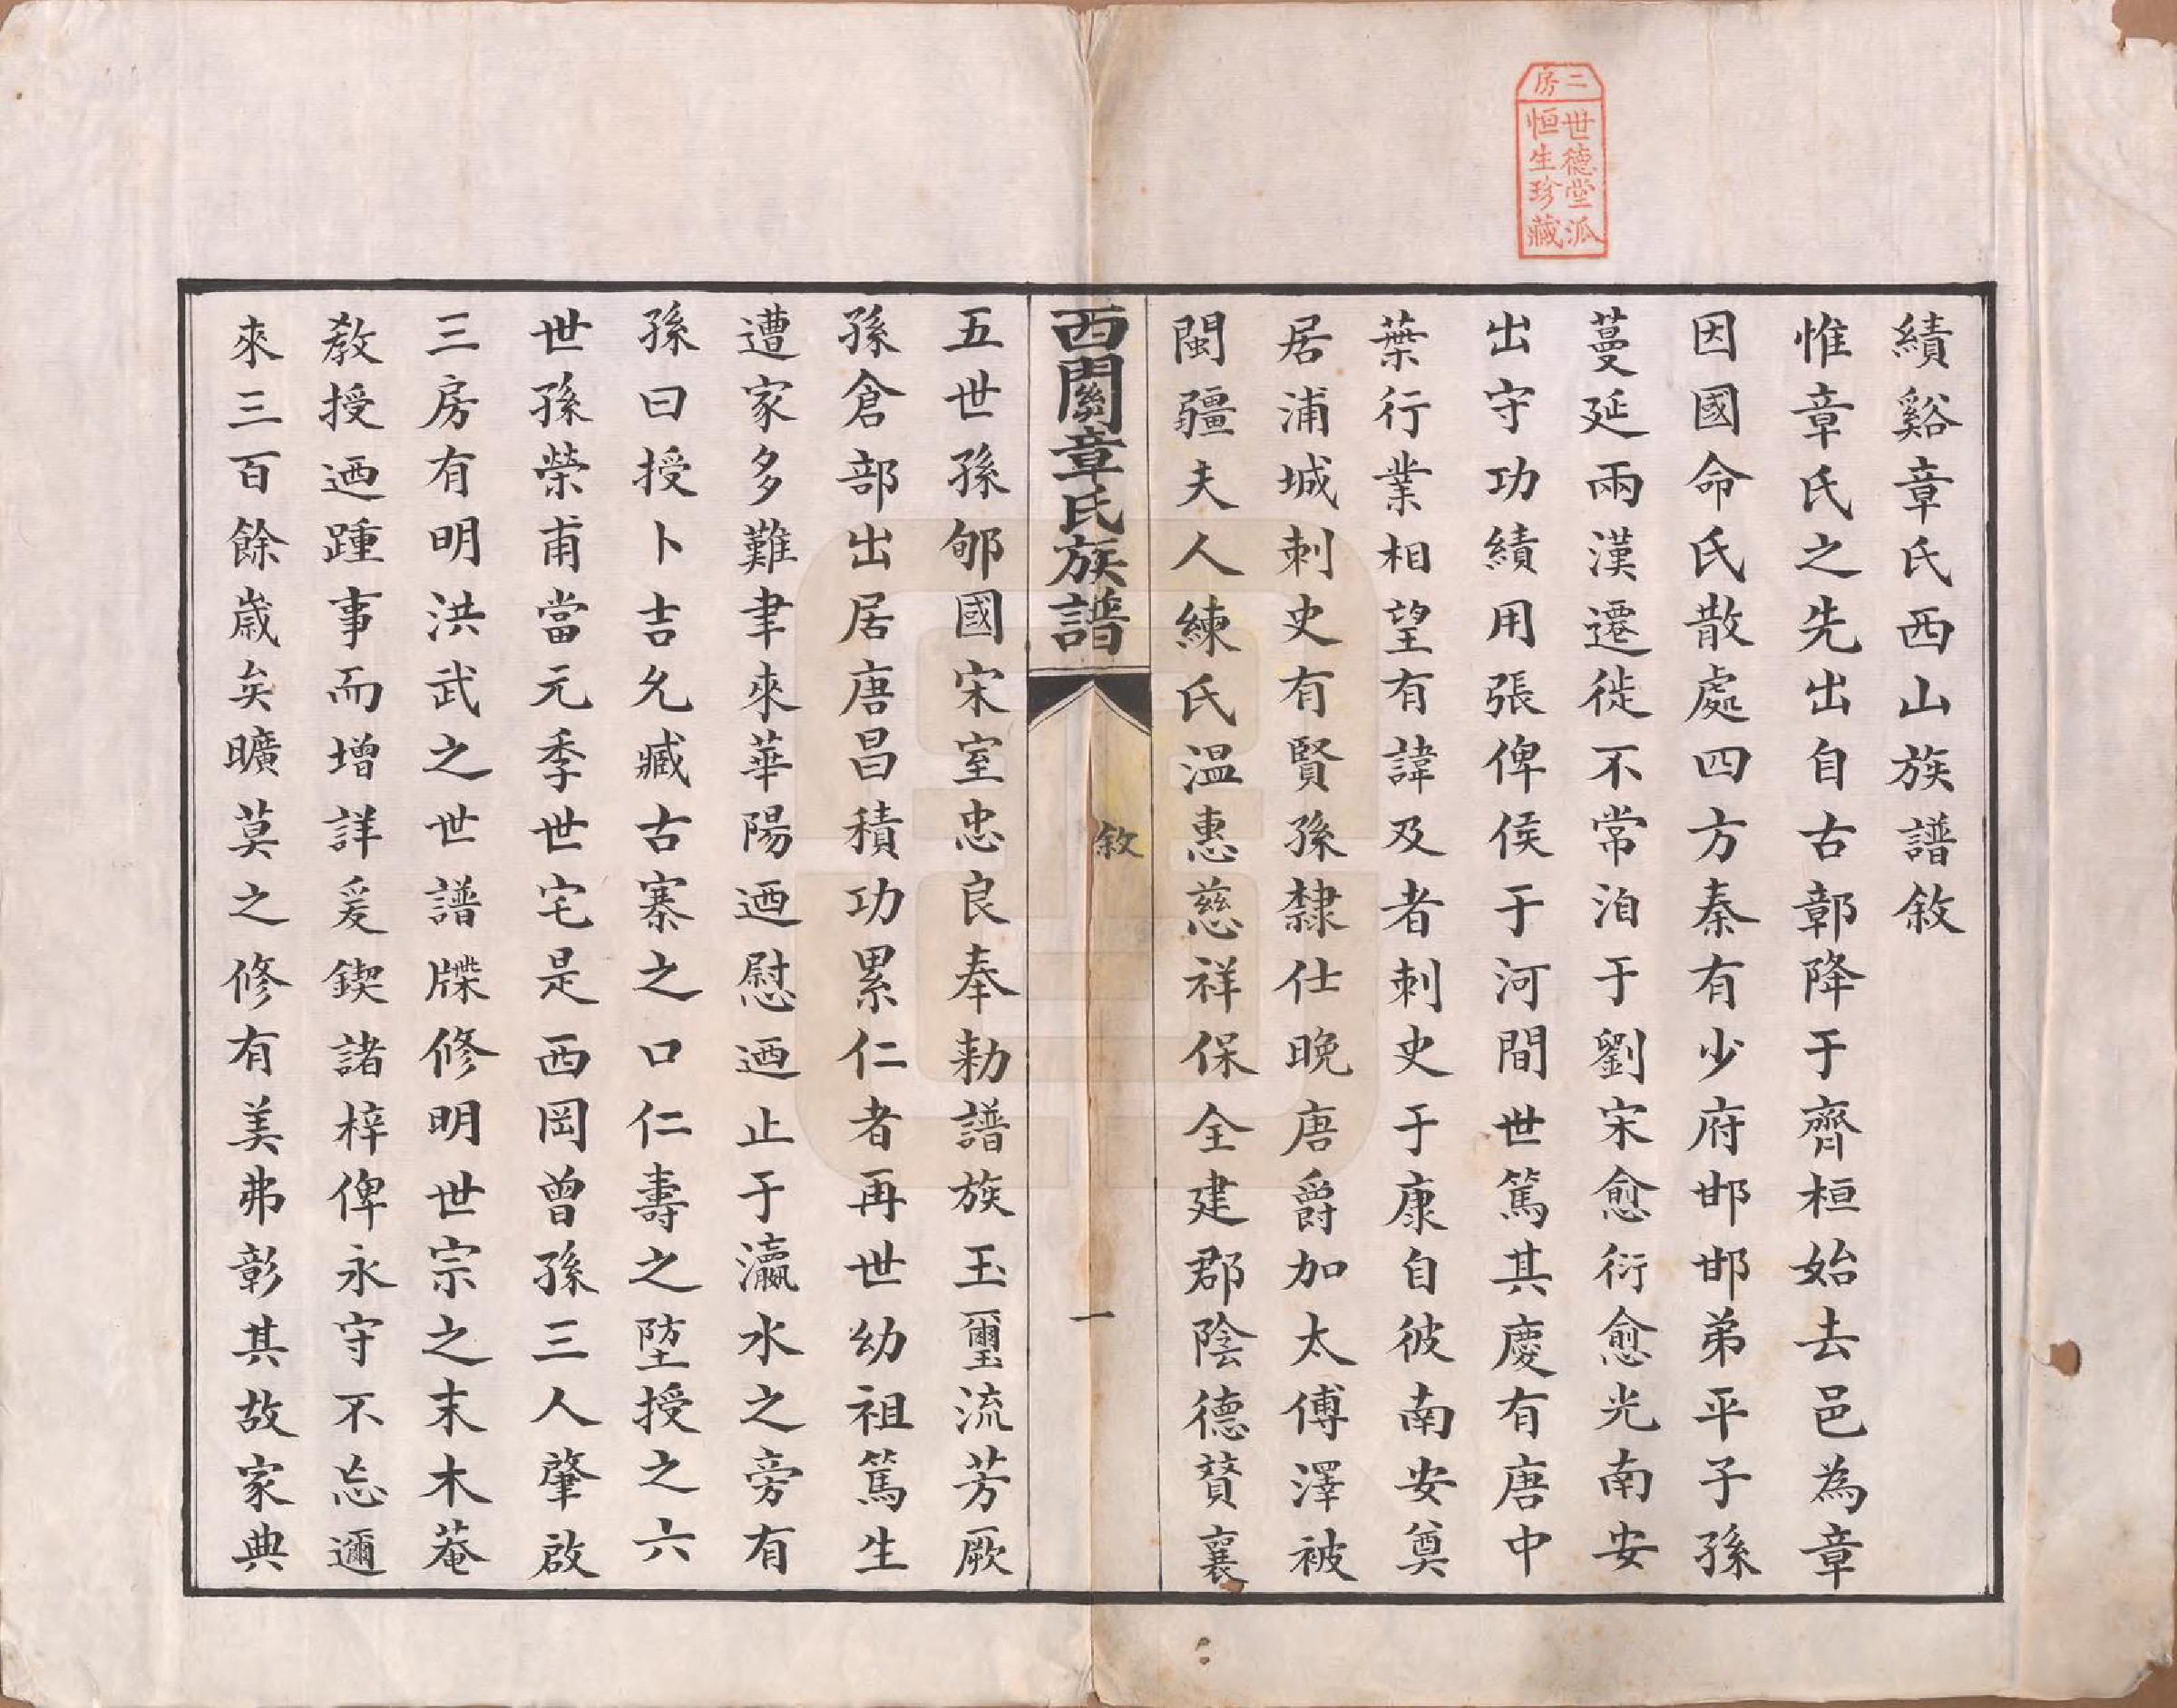 二房
世德堂派
恒生珍藏
績谿章氏西山族譜敘
惟章氏之先出自古鄣降于齊桓始去邑為章
因國命氏散處四方秦有少府邯邯弟平子孫
蔓延兩漢遷徙不常洎于劉宋愈衍愈光南安
出守功績用張俾侯于河間世篤其慶有唐中
葉行業相望有諱及者刺史于康自彼南安奠
居浦城刺史有賢孫隸仕晚唐爵加太傅澤被
閩疆夫人練氏溫惠慈祥保全建郡陰德賛襄
西關章氏族譜
敘
一
五世孫郇國宋室忠良奉勅譜族玉璽流芳厥
孫倉部出居唐昌積功累仁者再世幼祖篤生
遭家多難聿來華陽迺慰迺止于瀛水之旁有
孫曰授卜吉允臧古寨之口仁壽之堃授之六
世孫榮甫當元季世宅是西岡曾孫三人肇啟
三房有明洪武之世譜牒修明世宗之末木菴
教授迺踵事而增詳爰鍥諸梓俾永守不忘邇
來三百餘歲矣曠莫之修有美弗彰其故家典